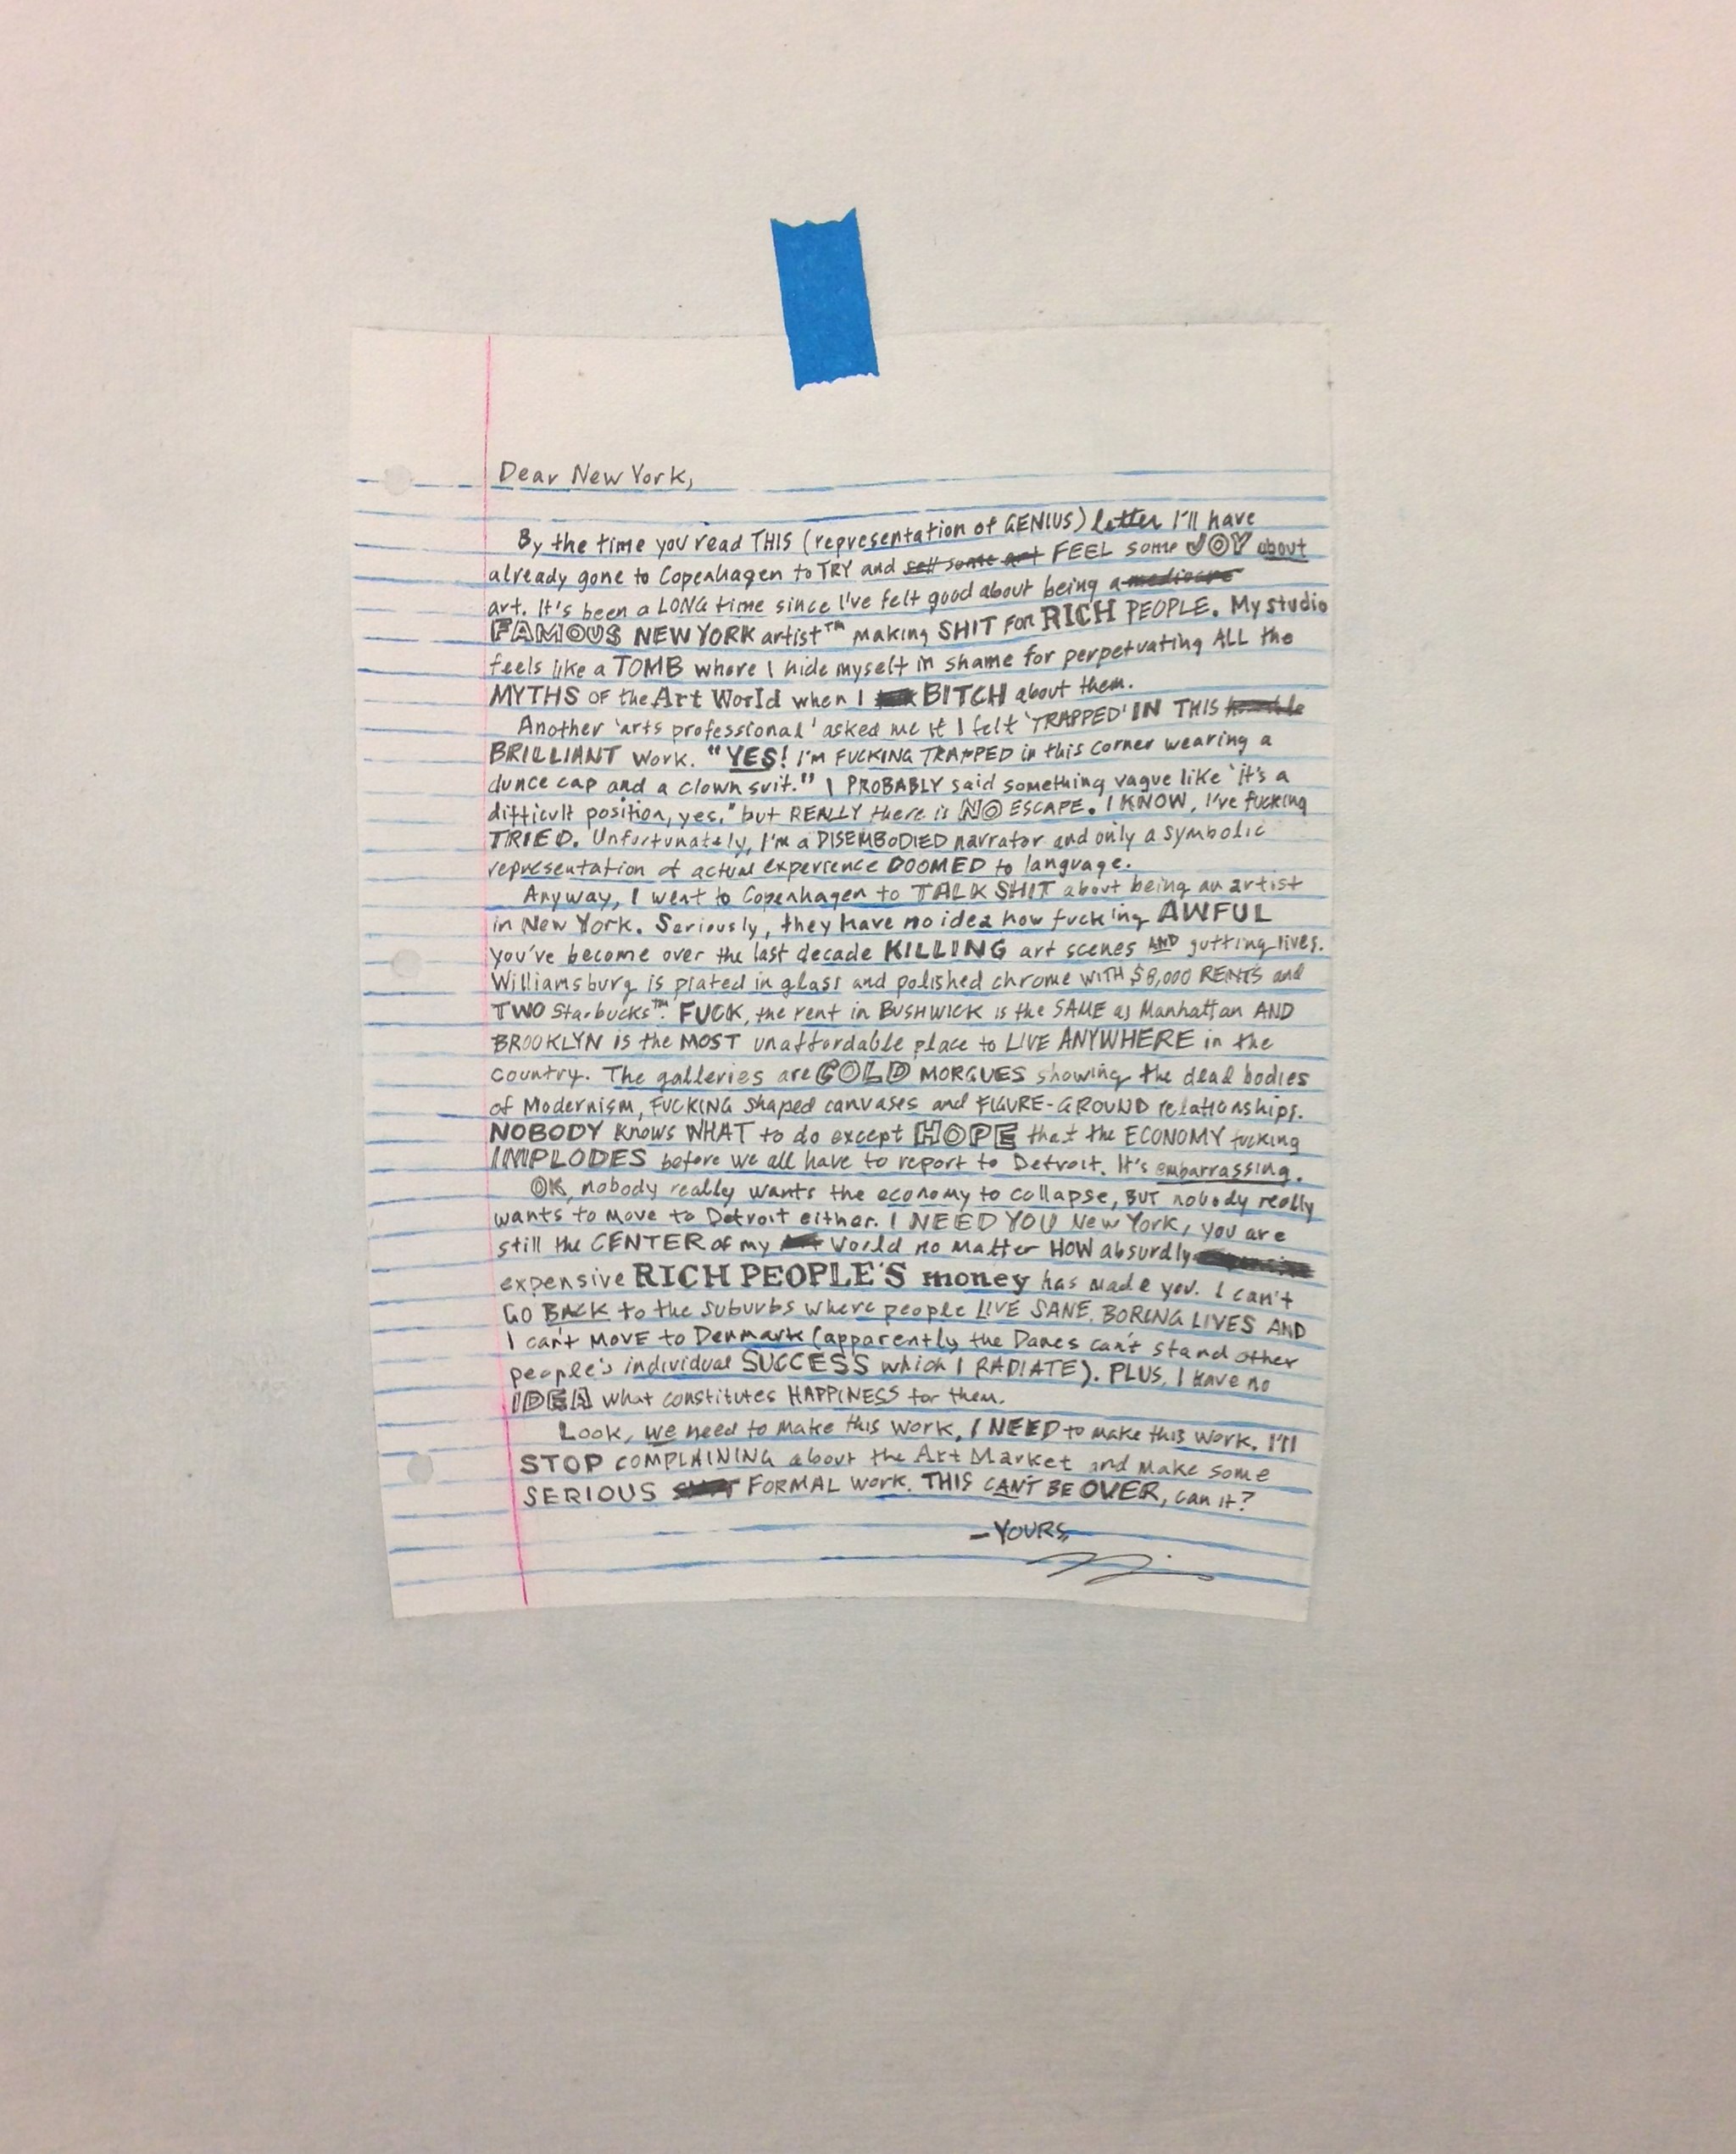 Dear New York,
By the time you read THIS (representation of GENIUS) letter I'll have
already gone to Copenhagen to TRY and sell some art FEEL some JOY about
art. It's been a LONG time since I've felt good about being a mediocre
FAMOUS NEW YORK artist™ making SHIT FOR RICH PEOPLE. My studio
feels like a TOMB where I hide myself in shame for perpetuating ALL the
MYTHS OF the Art World when I BITCH about them.
Another 'arts professional' asked me if I felt 'TRAPPED' IN THIS
BRILLIANT work. "YES! I'M FUCKING TRAPPED in this corner wearing a
dunce cap and a clown suit." I PROBABLY said something vague like 'it's a
difficult position, yes," but REALLY there is NO ESCAPE. I KNOW, I've fucking
TRIED. Unfortunately, I'm a DISEMBODIED narrator and only a symbolic
representation of actual experience DOOMED to language.
Anyway, I went to Copenhagen to TALK SHIT about being an artist
in New York. Seriously, they have no idea how fucking AWFUL
you've become over the last decade KILLING art scenes AND gutting lives.
Williamsburg is plated in glass and polished chrome WITH $8,000 RENTS and
TWO Starbucks™. FUCK, the rent in BUSHWICK is the SAME as Manhattan AND
BROOKLYN is the MOST unaffordable place to LIVE ANYWHERE in the
country. The galleries are COLD MORGUES showing the dead bodies
of Modernism, FUCKING shaped canvases and FIGURE-GROUND relationships.
NOBODY knows WHAT to do except HOPE that the ECONOMY fucking
IMPLODES before we all have to report to Detroit. It's embarrassing.
OK, nobody really wants the economy to collapse, BUT nobody really
wants to move to Detroit either. I NEED YOU New York, you are
still the CENTER of my World no matter HOW absurdly
expensive RICH PEOPLE'S money has made you. I can't
GO BACK to the suburbs where people LIVE SANE, BORING LIVES AND
I can't MOVE to Denmark (apparently the Danes can't stand other
people's individual SUCCESS which I RADIATE). PLUS, I have no
IDEA what constitutes HAPPINESS for them.
Look, we need to make this work, I NEED to make this work. I'll
STOP COMPLAINING about the Art Market and make some
SERIOUS FORMAL work. THIS CAN'T BE OVER, can it?
-YOURS,